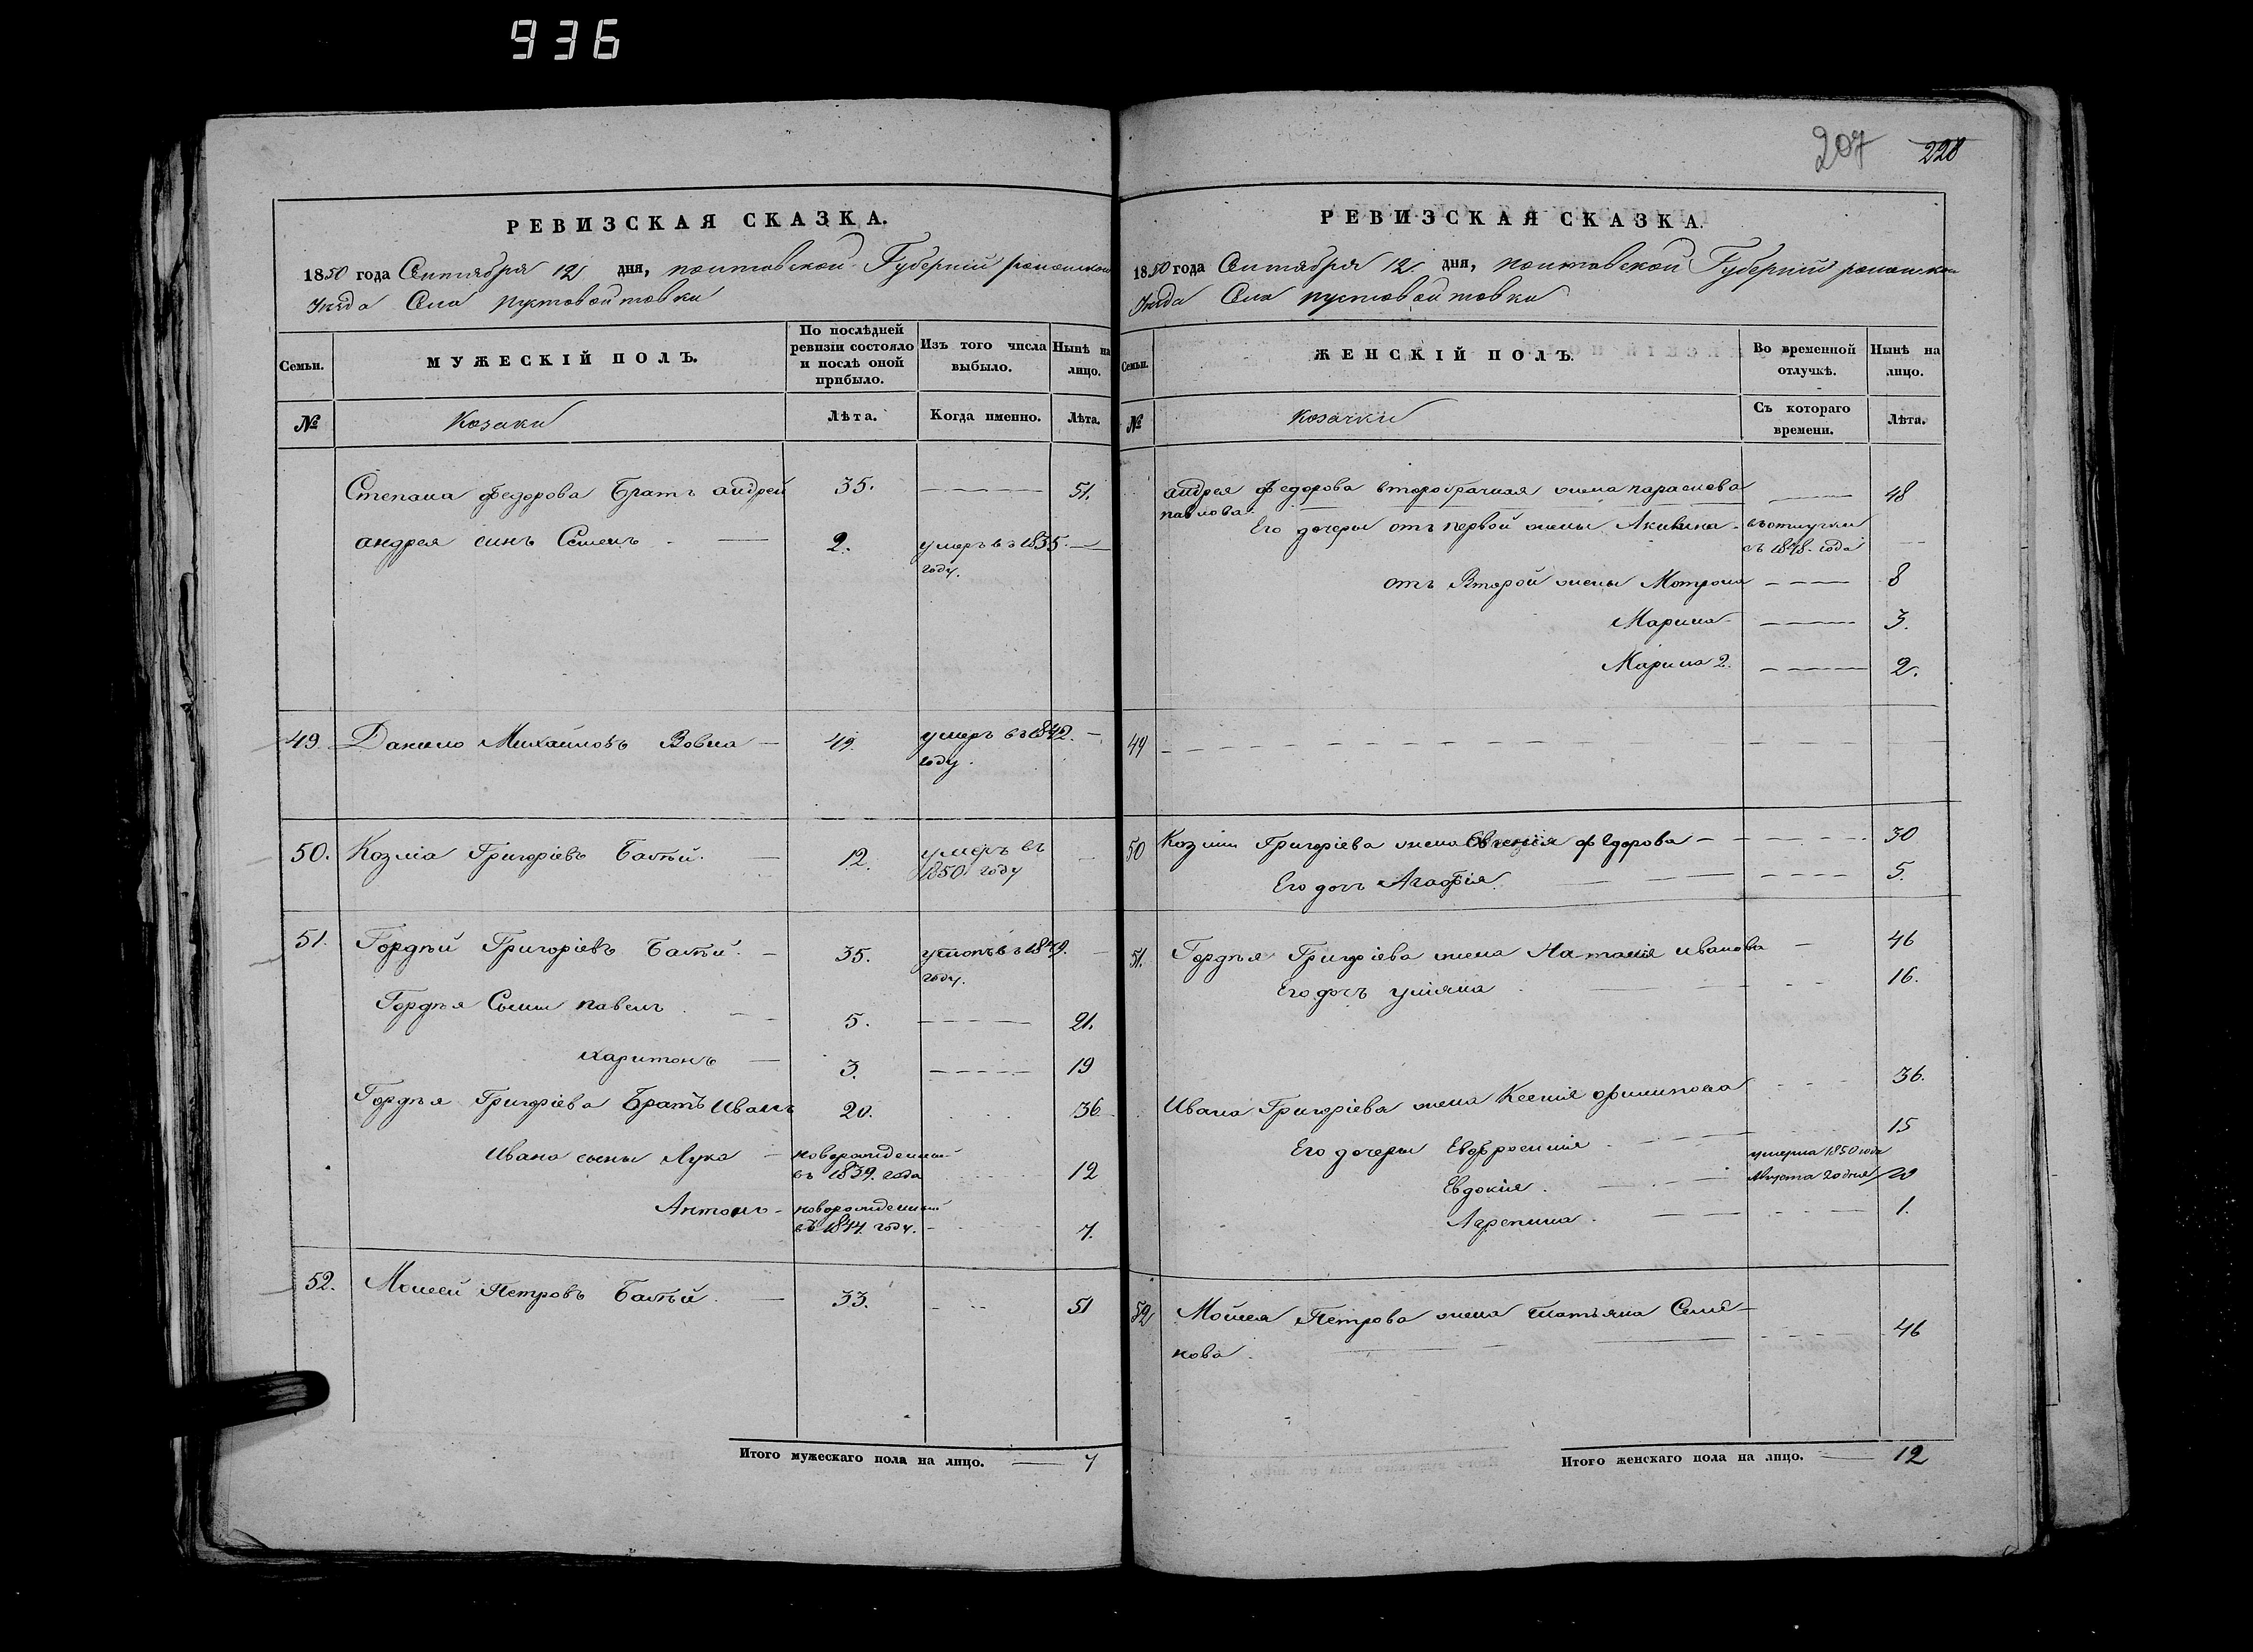 936
207 228
РЕВИЗСКАЯ СКАЗКА.
1850 года Сентября 12 дня, полтавской Губерній роменского
Уѣзда Села пустовойтовки
Семьи. МУЖЕСКІЙ ПОЛЪ. По послѣдней ревизіи состояло и послѣ оной прибыло. Изъ того числа выбыло. Нынѣ на лицо.
№ Козаки Лѣта. Когда именно. Лѣта.
Степана федорова Братъ андрей 35. 51.
андрея синъ Семенъ 2. умеръ въ 1835 году.
49. Данило Михайловъ Вовна 49. умеръ въ 1842 году.
50. Козміа Григоріевъ 12. умеръ въ 1850 году
51. Гордѣй Григоріевъ 35. году.
Гордѣя Сыны павелъ 5. 21.
харитонъ 3. 19
Гордѣя Григоріева Братъ Иванъ 20. 36
Ивана сыны Лука новорожденный въ 1839. года 12
Антонъ новорожденный въ 1844 году. 7.
52. Мойсей Петровъ 33. 51
Итого мужескаго пола на лицо. 7
РЕВИЗСКАЯ СКАЗКА.
1850 года Сентября 12. дня, полтавской Губерній роменского
Уѣзда Села пустовойтовки
Семьи. ЖЕНСКІЙ ПОЛЪ. Во временной отлучкѣ. Нынѣ на лицо.
№ Козачки Съ котораго времени. Лѣта.
андрея федорова второбрачная жена параскова 48
павлова
Его дочеры отъ первой жены Акилина въ отлучки съ 1848 года
отъ Второй жены Мотрона 8
Марина 3.
Марина 2. 2.
49
50 Козміи Григоріева жена Евгенія федорова 30
Его дочь Агафія 5.
51. Гордѣя Григоріева жена Наталія иванова 46
Его дочь уліяна 16.
Ивана Григоріева жена Ксенія филипова 36.
Его дочеры Евфросинія 15
Евдокія умерла 1850 года Августа 20 дня
Агрепина 1.
52 Мойсея Петрова жена татьяна Семе-
нова 46
Итого женскаго пола на лицо. 12